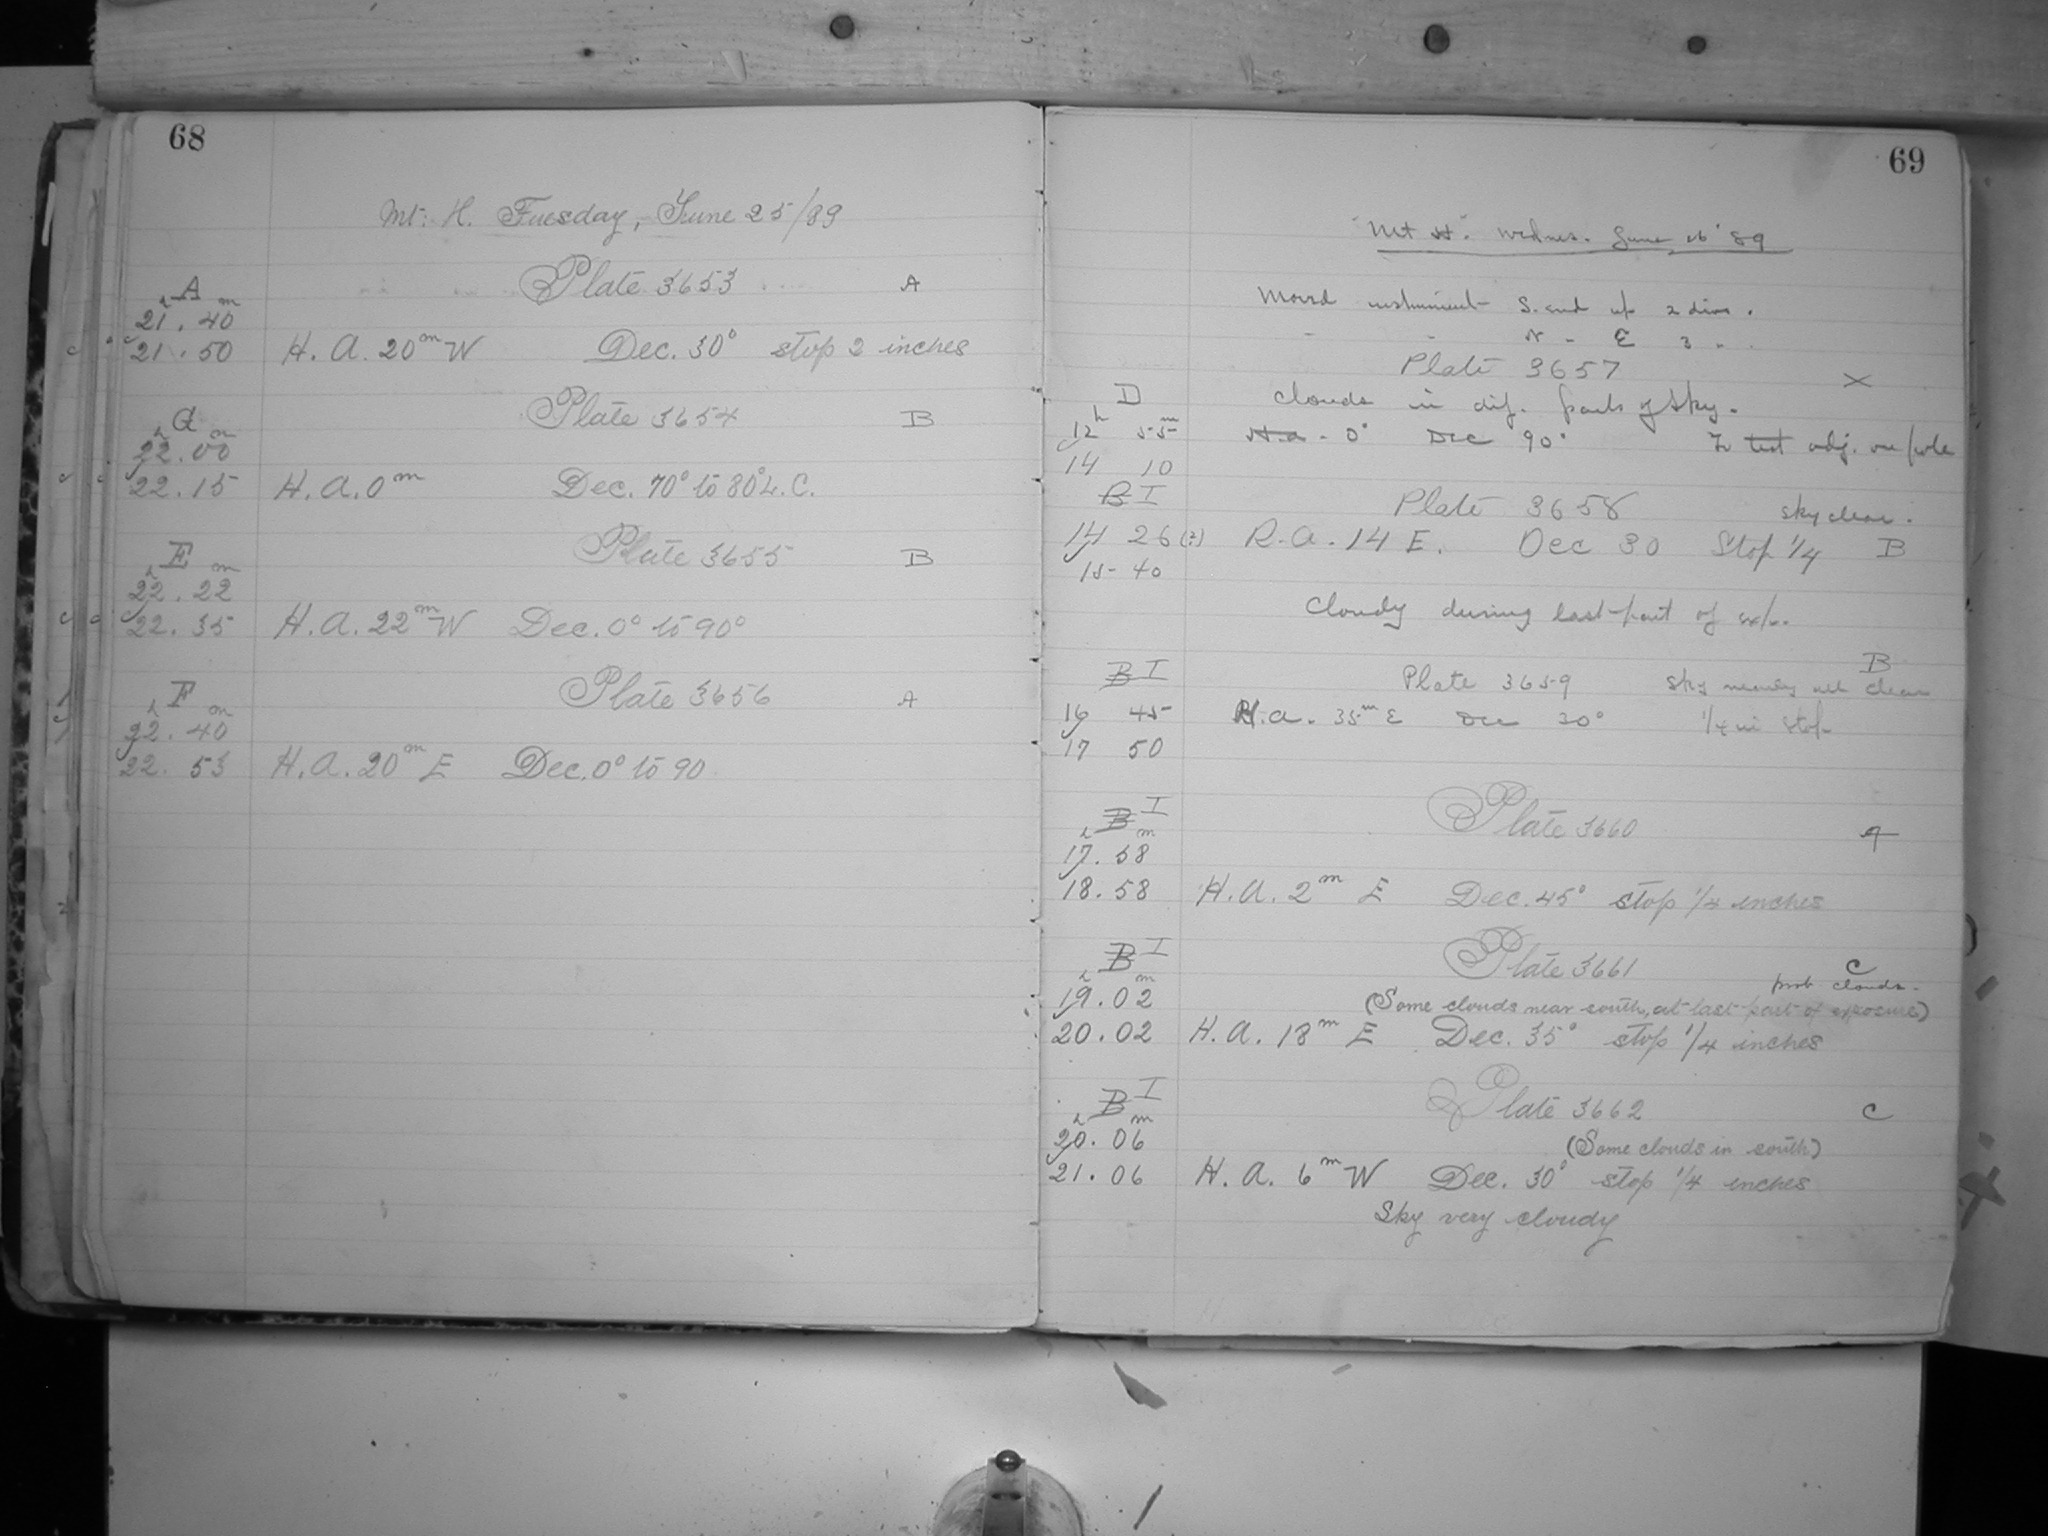 68
Mt. H. Tuesday, June 25/89
Plate 3653 A
A
h m
21.40
21.50 H. A. 20m W Dec. 30° stop 2 inches
Plate 3654 B
G
h m
22.00
22.15 H. A. 0m Dec. 70° to 80° L. C.
Plate 3655 B
E
h m
22.22
22.35 H. A. 22m W Dec. 0° to 90°
Plate 3656 A
F
h m
22.40
22.53 H. A. 20m E Dec. 0° to 90
69
"Mt H". Wednes. June 26 '89
Moved instrument S. end up 2 divs.
" " N " E 3 " .
Plate 3657 X
D
Clouds in dif. parts of sky.
12h 55m H.a. 0° Dec 90° To test adj. on pole
14 10
B I
Plate 3658 sky clear.
14 26 (?) R.a. 14 E. Dec 30 Stop 1/4 B
15 40
Cloudy during last part of exp.
B
B I
Plate 3659 Sky nearly all clear
16 45 H.a. 35m E Dec 30° 1/4 in stop
17 50
B I
Plate 3660
h m
17.58
18.58 H. A. 2m E Dec. 45° stop 1/4 inches
B I
Plate 3661 C
prob clouds.
h m
19.02 (Some clouds near south, at last part of exposure)
20.02 H. A. 18m E Dec. 35° stop 1/4 inches
B I
Plate 3662 C
h m
20.06 (Some clouds in south)
21.06 H. A. 6m W Dec. 30° stop 1/4 inches
Sky very cloudy